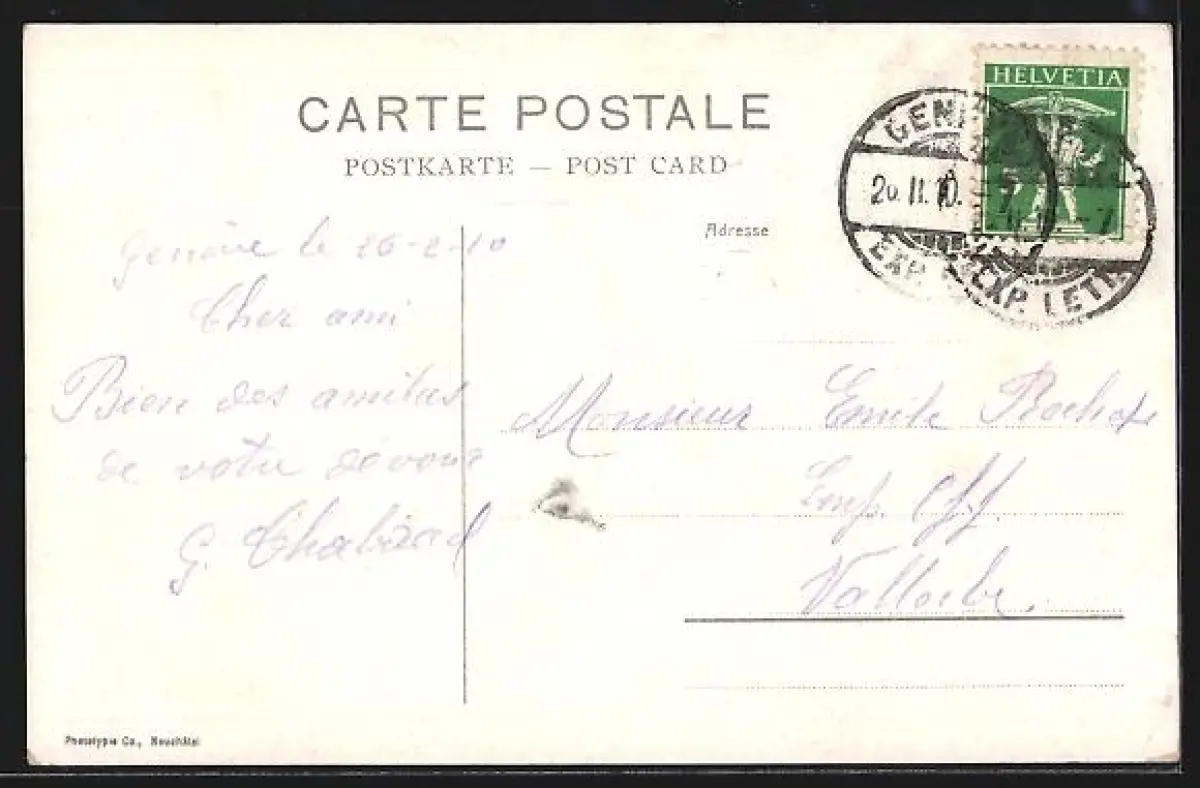 CARTE POSTALE
POSTKARTE — POST CARD
HELVETIA
20.II.10.
-7
EXP. LETT.
Adresse
Genève le 26-2-10
Cher ami
Bien des amitas
de votre dévoué
G.
Monsieur Emile
Emp.
Vallorbe.
Phototypie Co., Neuchâtel